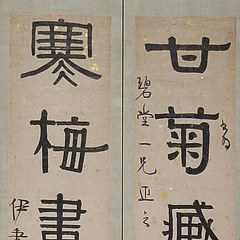 甘菊
碧堂一兄正之
寒梅
伊秉